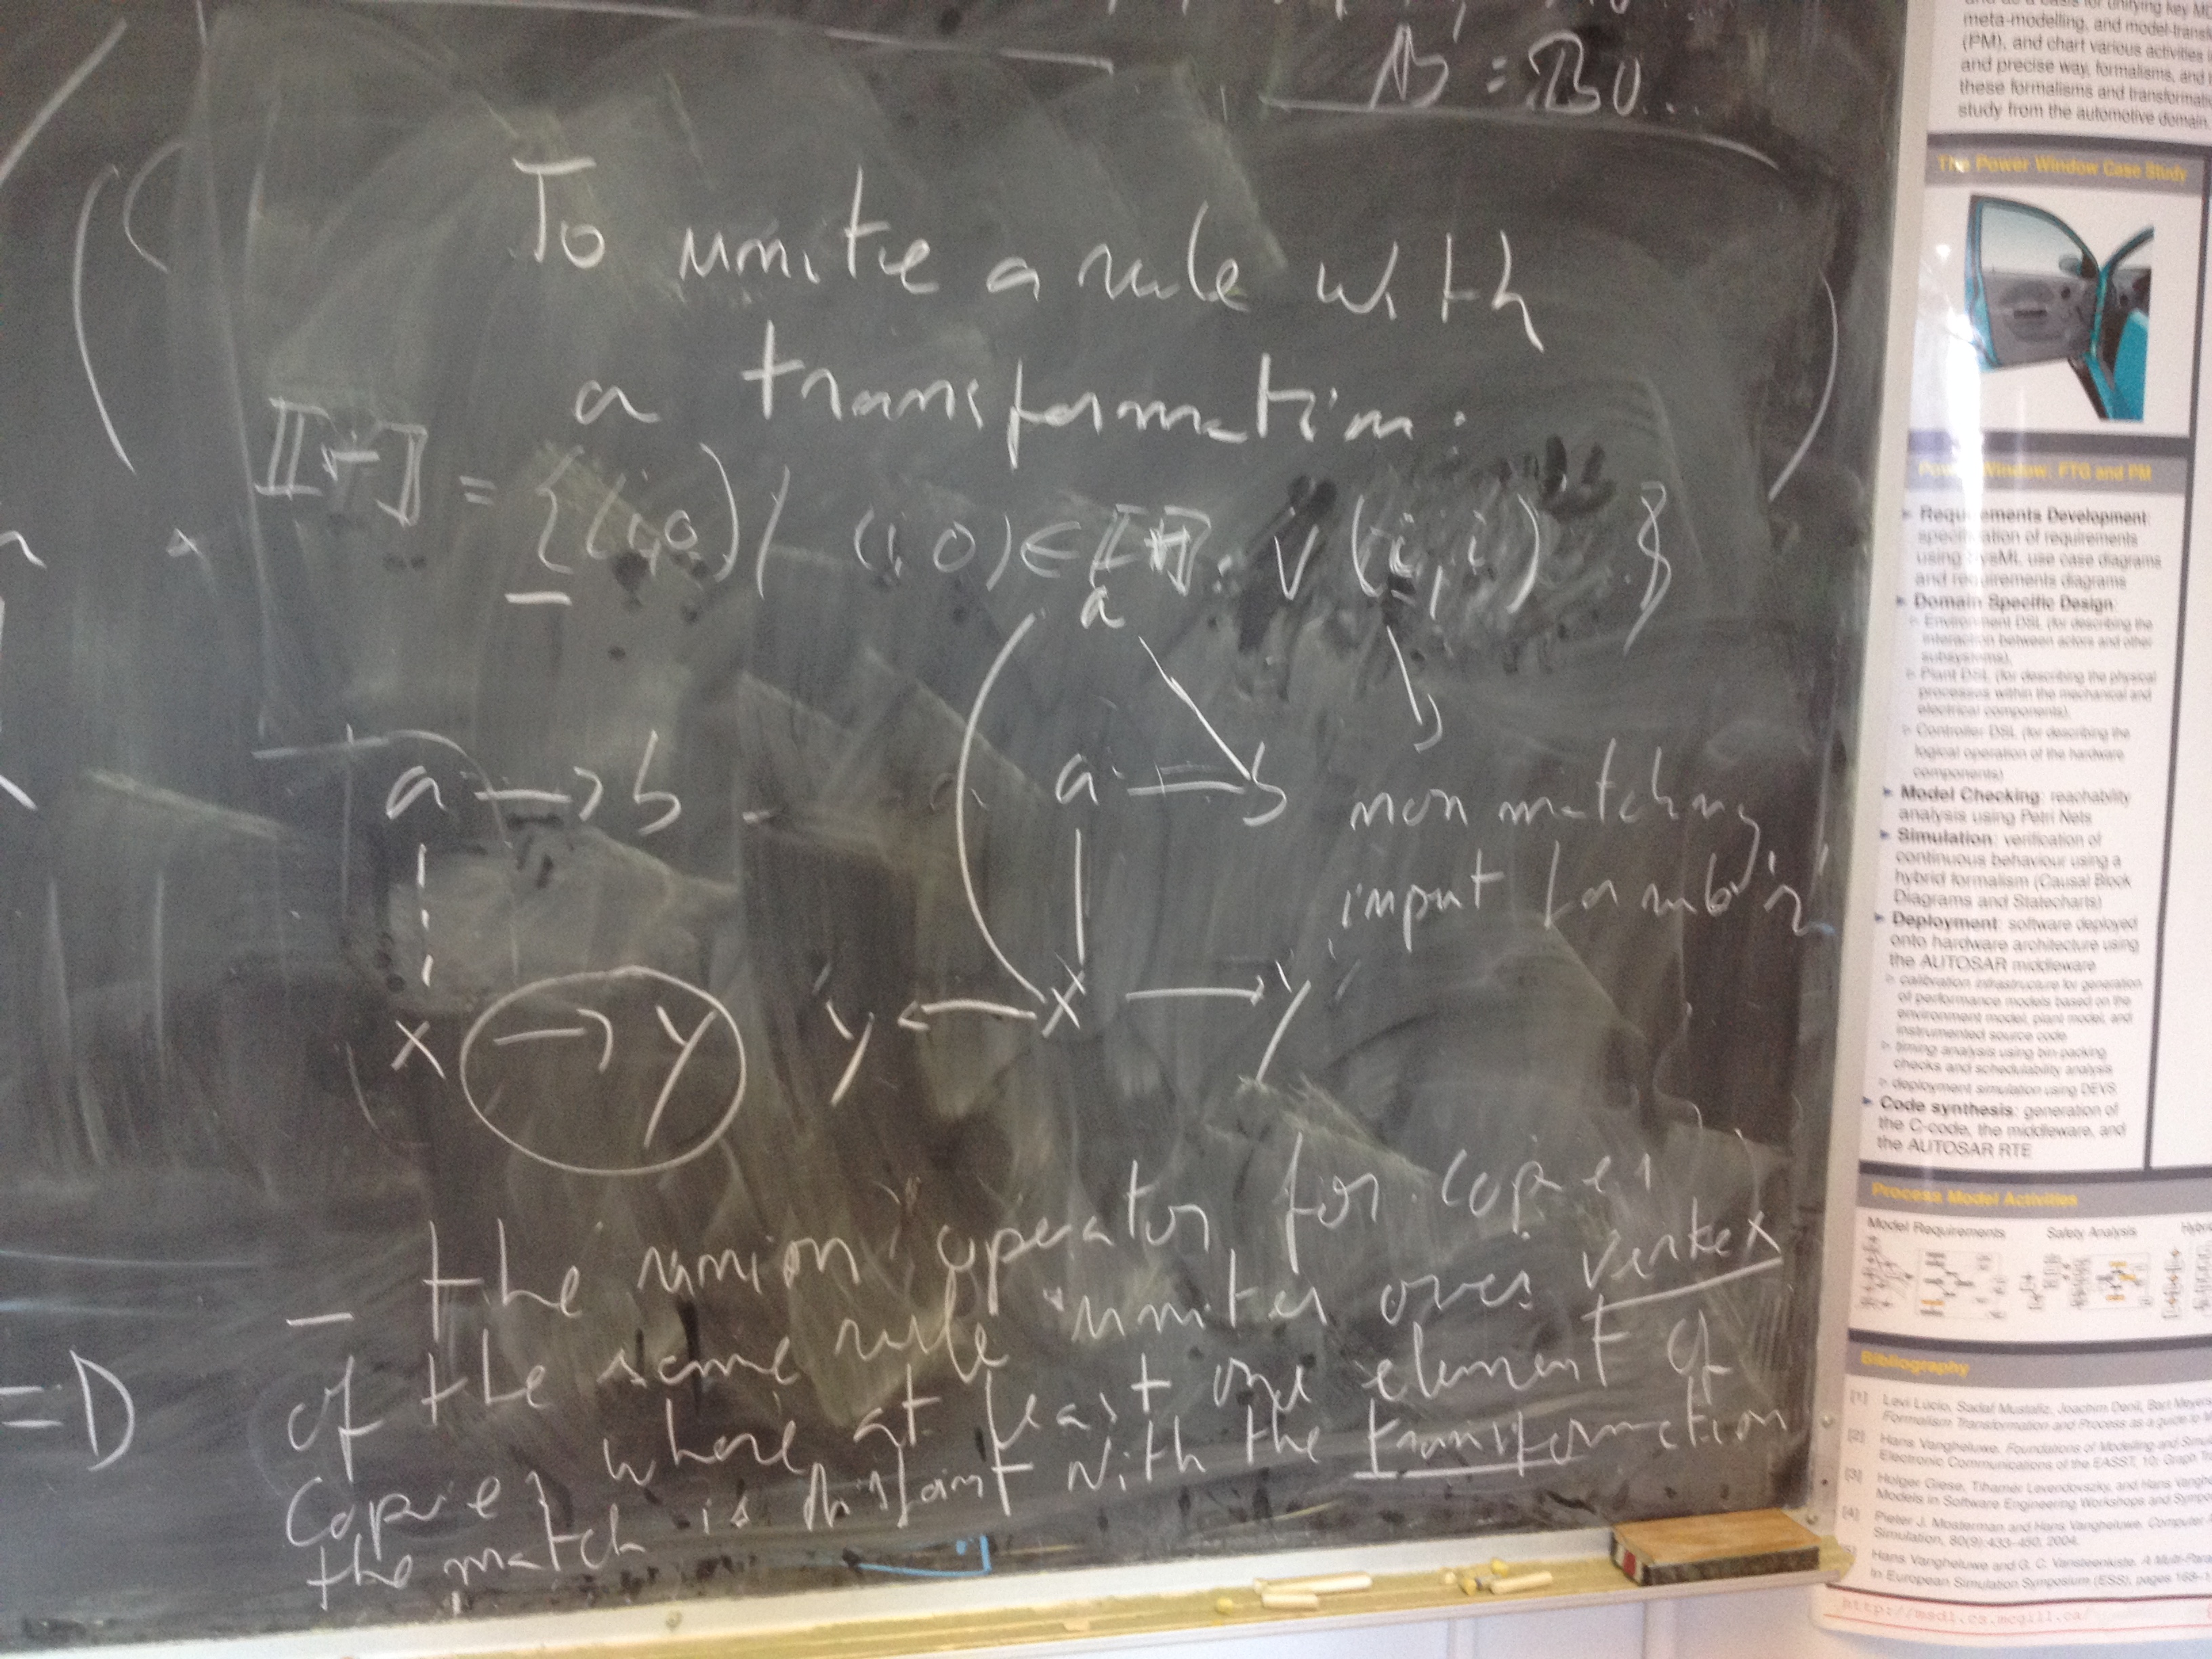 B : B0...
To unite a rule with
a transformation:
= {(i,o) | (i,o) ∈ V (i,i) }
a
a → b
a b
non matching
input for rub
x → y
y ← x → y
- the union operator for copies
of the same rule unites over vertex
copies where at least one element of
the match is disjoint with the transformation
= D
and as a basis for unifying key
meta-modelling, and model-transf
(PM), and chart various activities
and precise way, formalisms, and
these formalisms and transformati
study from the automotive domain.
The Power Window Case Study
Power Window: FTG and PM
Requirements Development:
specification of requirements
using SysML use case diagrams
and requirements diagrams
Domain Specific Design:
Environment DSL (for describing the
interaction between actors and other
subsystems),
Plant DSL (for describing the physical
processes within the mechanical and
electrical components),
Controller DSL (for describing the
logical operation of the hardware
components)
Model Checking: reachability
analysis using Petri Nets
Simulation: verification of
continuous behaviour using a
hybrid formalism (Causal Block
Diagrams and Statecharts)
Deployment: software deployed
onto hardware architecture using
the AUTOSAR middleware
calibration infrastructure for generation
of performance models based on the
environment model, plant model, and
instrumented source code
timing analysis using bin packing
checks and schedulability analysis
deployment simulation using DEVS
Code synthesis: generation of
the C-code, the middleware, and
the AUTOSAR RTE
Process Model Activities
Model Requirements Safety Analysis Hybri
Bibliography
[1] Levi Lucio, Sadaf Mustafiz, Joachim Denil, Bart Meye
Formalism Transformation and Process as a guide to
[2] Hans Vangheluwe. Foundations of Modelling and Simu
Electronic Communications of the EASST, 10: Graph T
[3] Holger Giese, Tihamér Levendovszky, and Hans Vanghe
Models in Software Engineering Workshops and Symp
[4] Pieter J. Mosterman and Hans Vangheluwe. Computer
Simulation, 80(9):433-450, 2004.
Hans Vangheluwe and G. C. Vansteenkiste. A Multi-Para
In European Simulation Symposium (ESS), pages 168-1
http://msdl.cs.mcgill.ca/